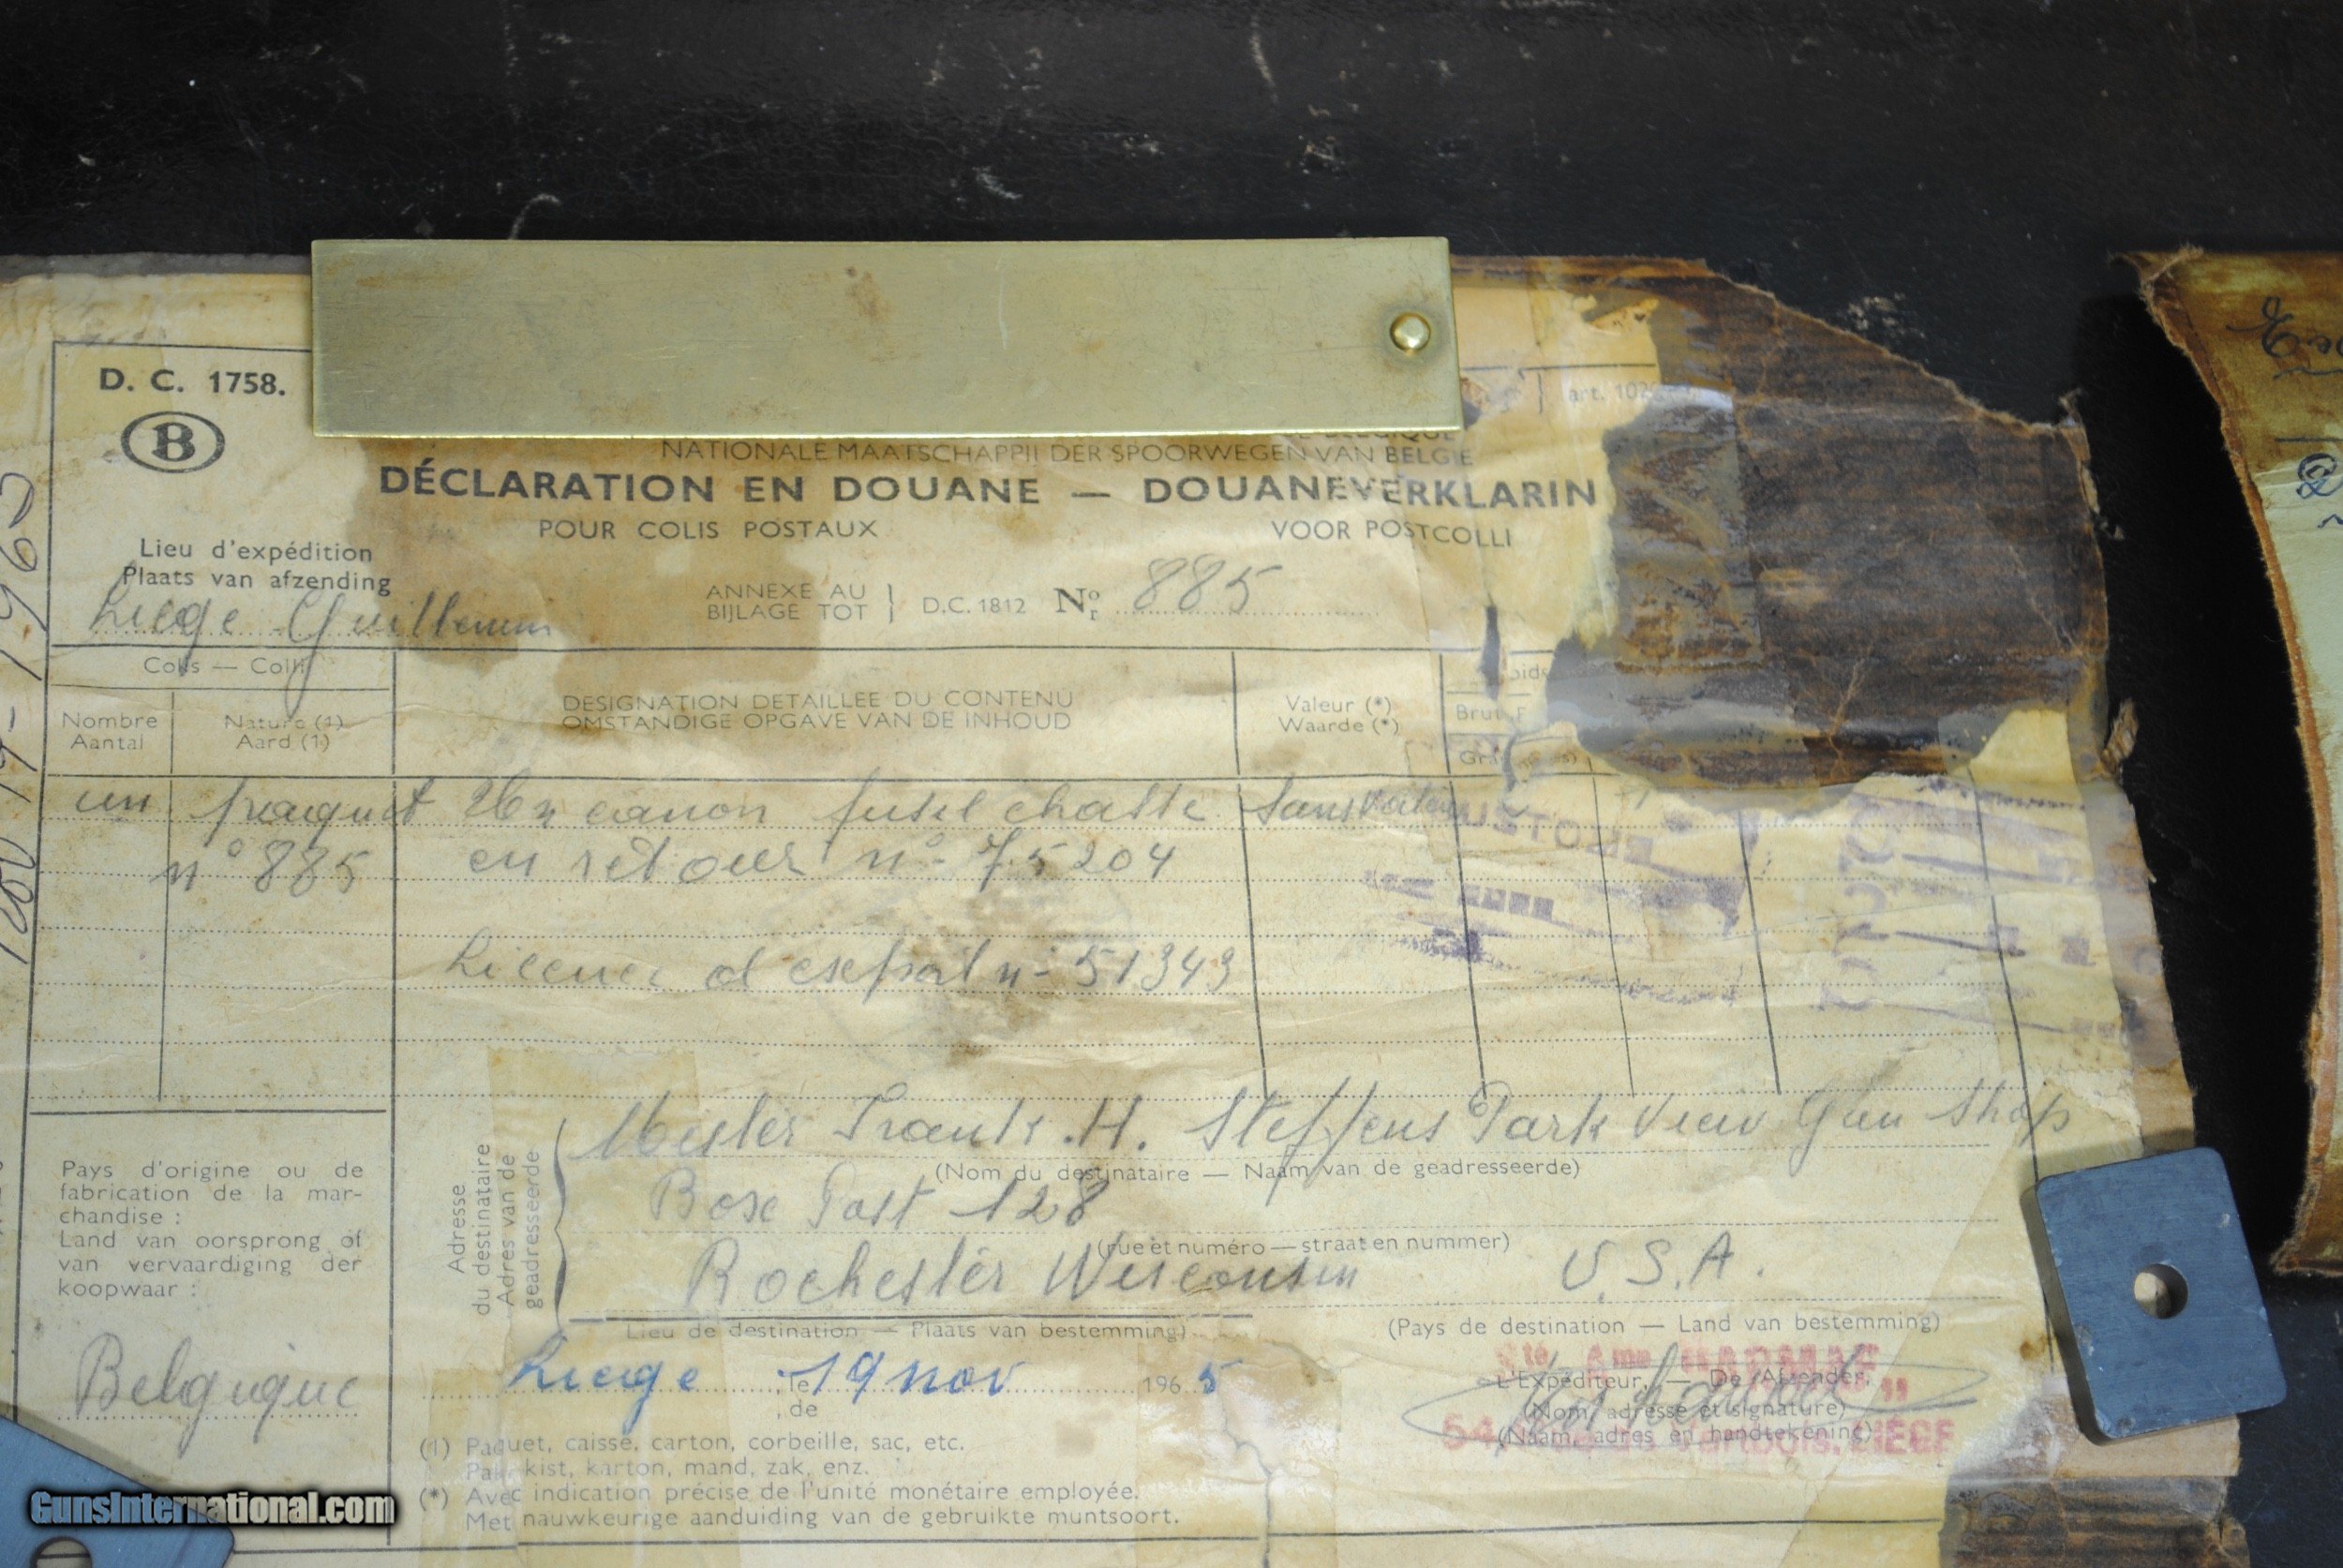 D. C. 1758.
B
art. 102
NATIONALE MAATSCHAPPIJ DER SPOORWEGEN VAN BELGIE
DÉCLARATION EN DOUANE — DOUANEVERKLARIN
POUR COLIS POSTAUX VOOR POSTCOLLI
Lieu d'expédition
Plaats van afzending
Liege Guillemin
ANNEXE AU
BIJLAGE TOT } D.C. 1812 No r 885
Colis — Colli
Nombre
Aantal
Nature (1)
Aard (1)
DESIGNATION DETAILLEE DU CONTENU
OMSTANDIGE OPGAVE VAN DE INHOUD
Valeur (*)
Waarde (*)
Brut
un paquet canon fusil chasse Sans valeur
n° 885 en retour n° 75204
Licence d'export n° 51343
Adresse
du destinataire
Adres van de
geadresseerde
Mister Frank .H. Steffens Park View Gun Shop
(Nom du destinataire — Naam van de geadresseerde)
Box Post 128
(rue et numéro — straat en nummer)
Rochester Wisconsin U.S.A.
Lieu de destination — Plaats van bestemming)
(Pays de destination — Land van bestemming)
Pays d'origine ou de
fabrication de la mar-
chandise :
Land van oorsprong of
van vervaardiging der
koopwaar :
Belgique
Liege , le 19 nov 196 5
, de
L'Expéditeur, — De Afzender,
(Nom, adresse et signature)
(Naam, adres en handtekening)
LIÈGE
(1) Paquet, caisse, carton, corbeille, sac, etc.
Pak, kist, karton, mand, zak, enz.
(*) Avec indication précise de l'unité monétaire employée.
Met nauwkeurige aanduiding van de gebruikte muntsoort.
GunsInternational.com